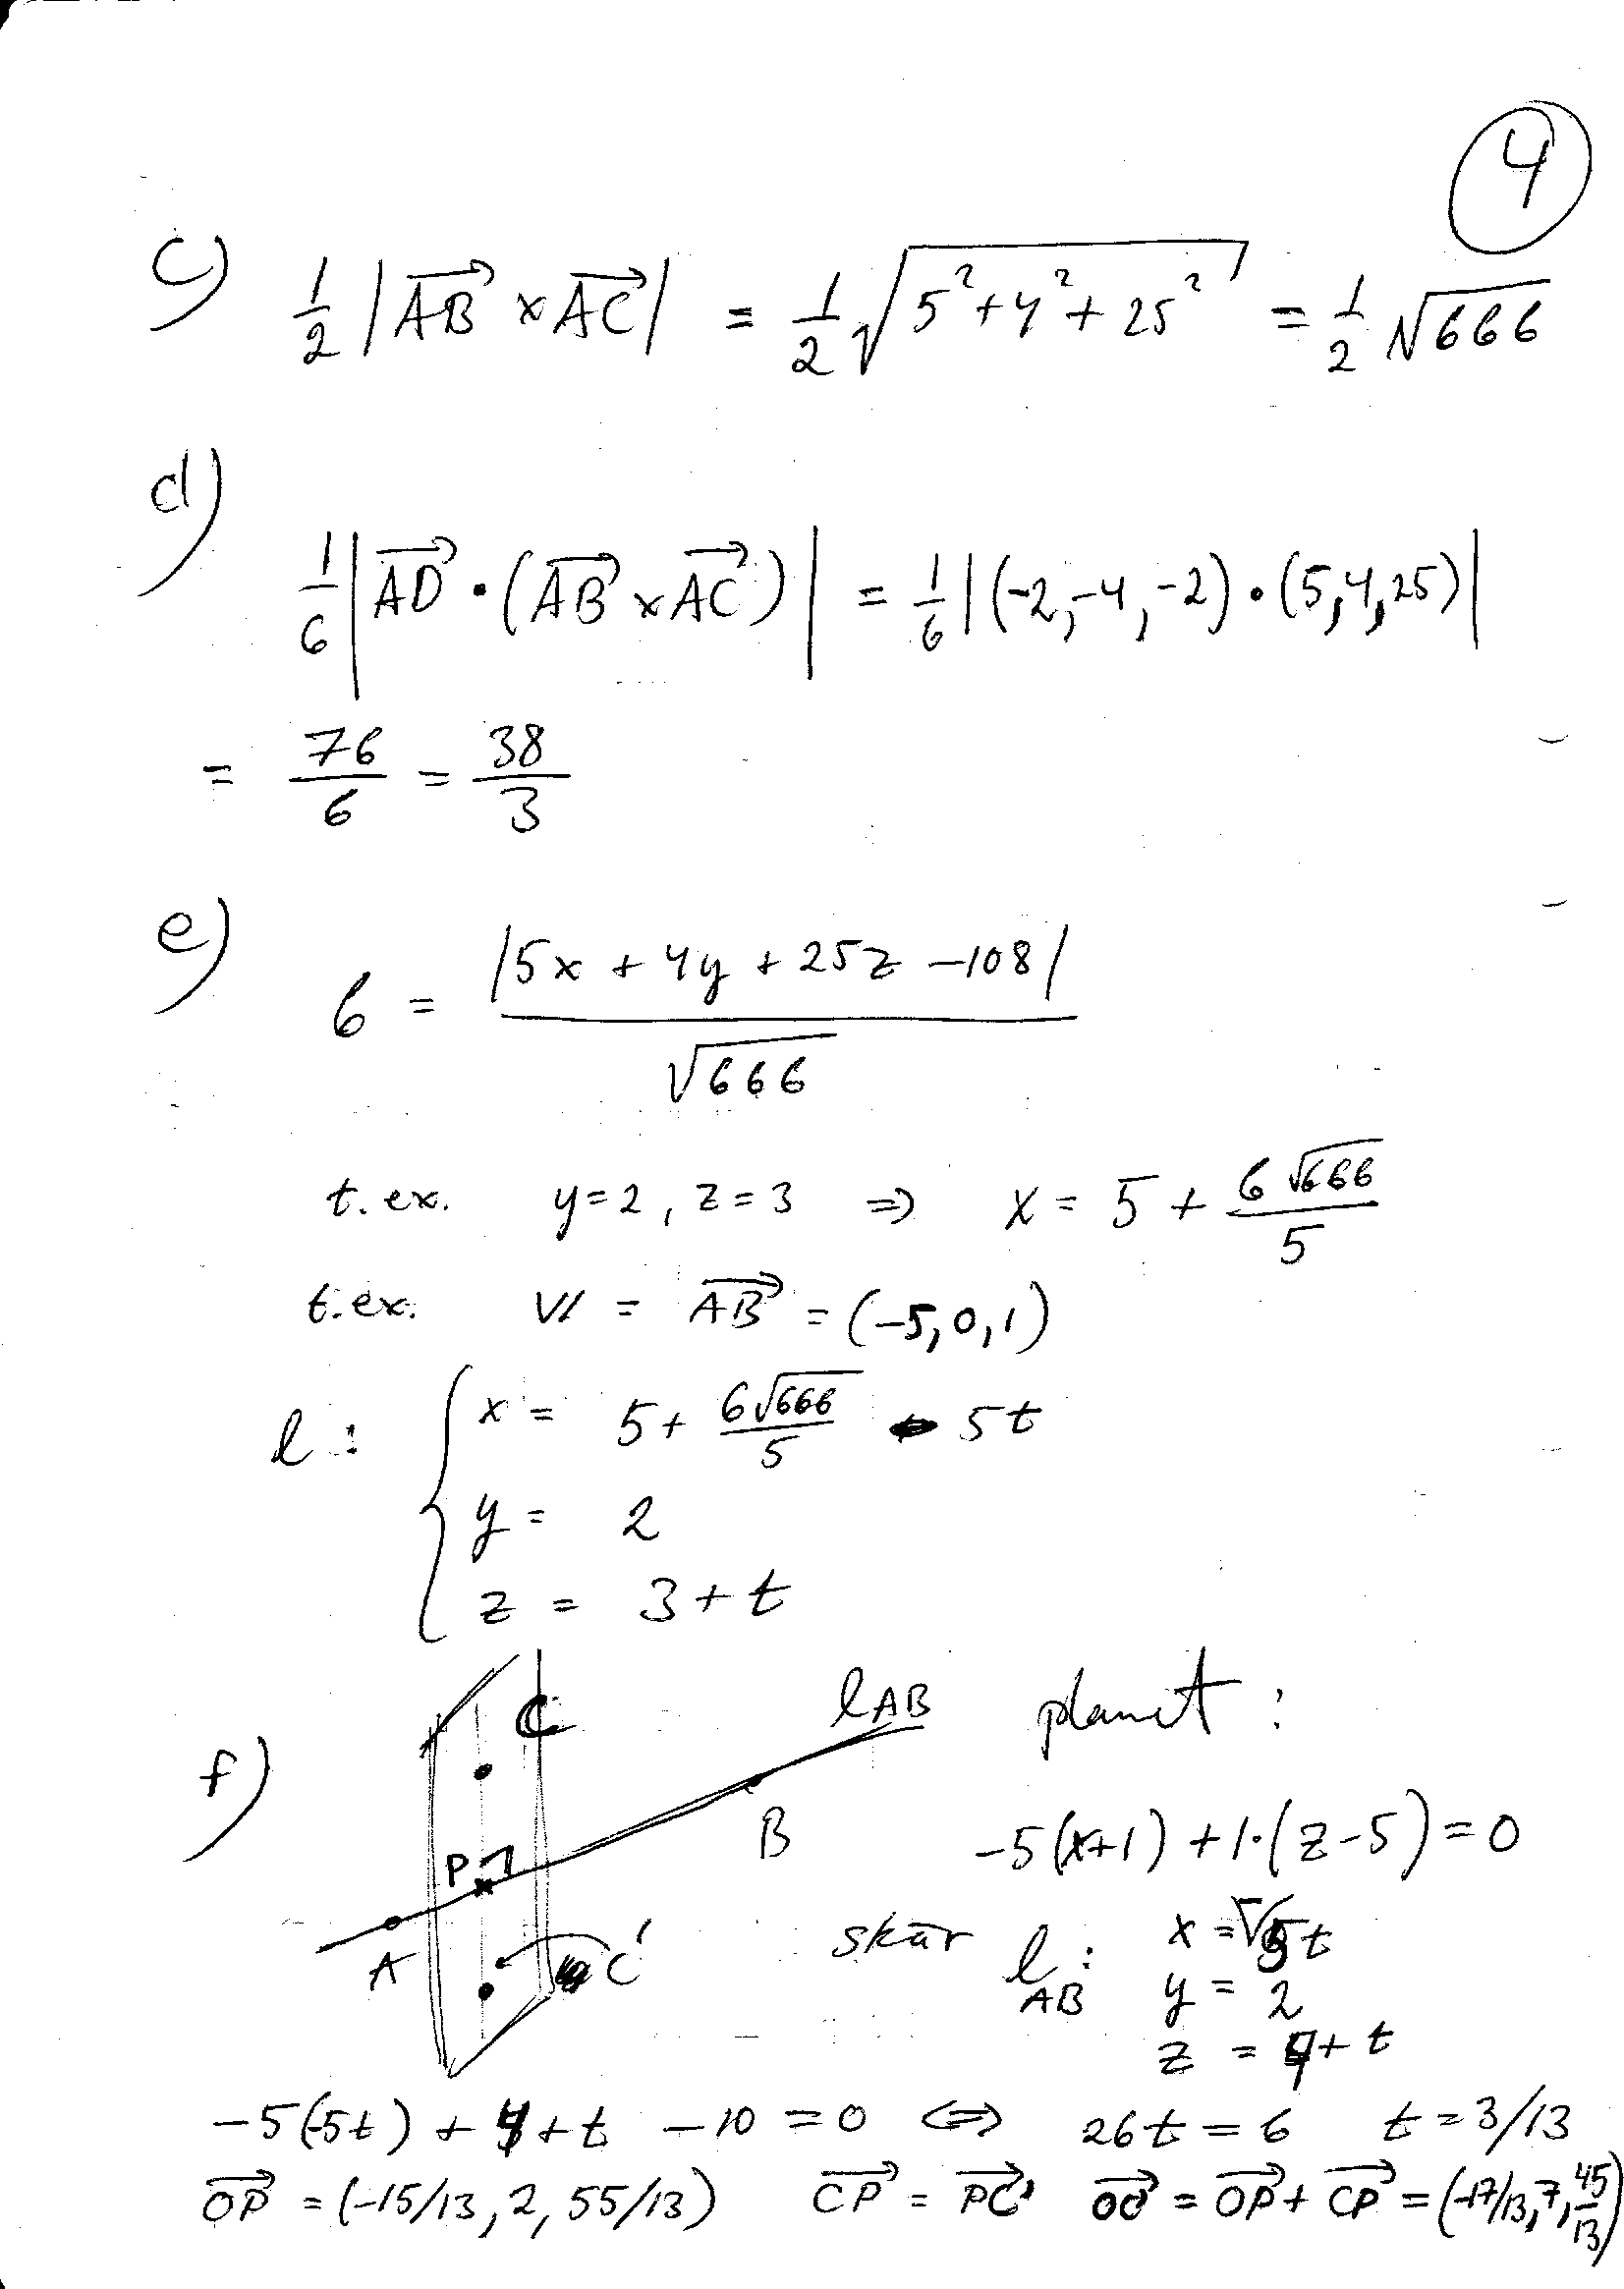 4
c) 1/2 |AB⃗ × AC⃗| = 1/2 √(5² + 4² + 25²) = 1/2 √666
d)
1/6 |AD⃗ • (AB⃗ × AC⃗)| = 1/6 |(-2, -4, -2) • (5, 4, 25)|
= 76/6 = 38/3
e) 6 = |5x + 4y + 25z - 108| / √666
t. ex. y = 2, z = 3 ⇒ x = 5 + 6√666/5
t. ex. v = AB⃗ = (-5, 0, 1)
l: { x = 5 + 6√666/5 - 5t
y = 2
z = 3 + t
f) C l_AB planet:
P B -5(x+1) + 1·(z-5) = 0
A C' skär l_AB: x = -5t
y = 2
z = 4 + t
-5(-5t) + 4 + t - 10 = 0 ⇔ 26t = 6 t = 3/13
OP⃗ = (-15/13, 2, 55/13) CP⃗ = PC'⃗ OC'⃗ = OP⃗ + CP⃗ = (-17/13, 7, 45/13)